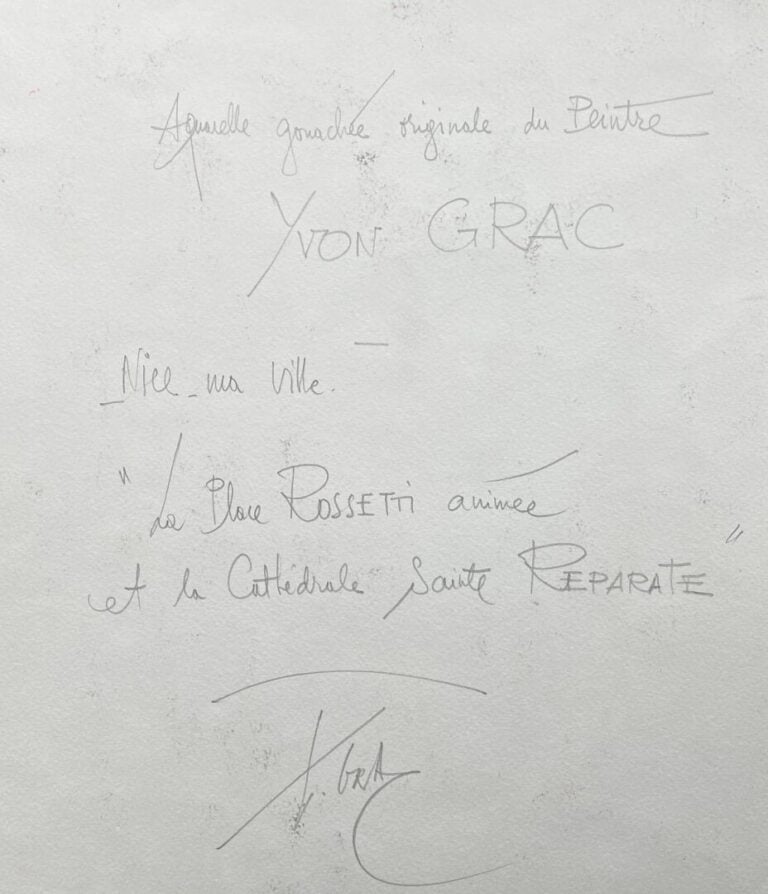 Aquarelle gouachée originale du Peintre
YVON GRAC
_Nice_ ma ville.
" La Place ROSSETTI animée
et la Cathédrale Sainte REPARATE "
Y. GRAC